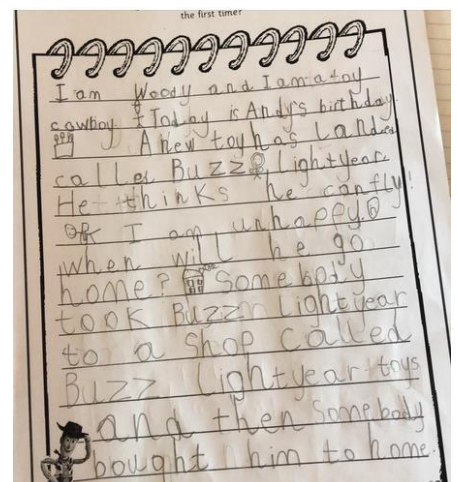 the first time?
I am Woody and I am a toy
cowboy Today is Andy's birthday.
A new toy has Landed
called Buzz Lightyear
He thinks he can fly!
I am unhappy.
when will he go
home? Somebody
took Buzz Lightyear
to a shop called
Buzz Lightyear toys
and then Somebody
bought him to home.